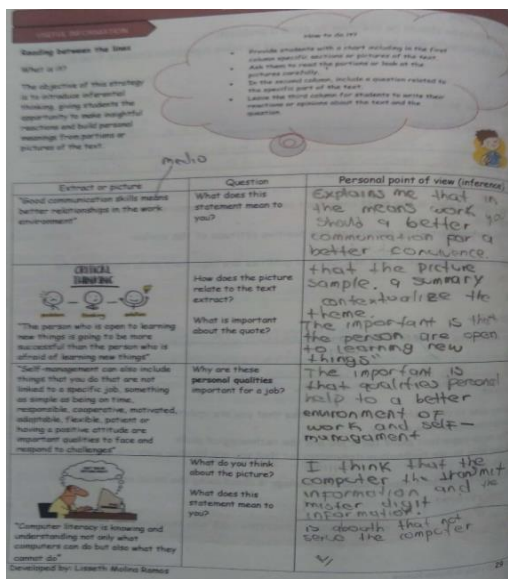 USEFUL INFORMATION
Reading between the lines
What is it?
The objective of this strategy
is to introduce inferential
thinking, giving students the
opportunity to make insightful
reactions and build personal
meanings from portions or
pictures of the text.
How to do it?
Provide students with a chart including in the first
column specific sections or pictures of the text.
Ask them to read the portions or look at the
pictures carefully.
In the second column, include a question related to
the specific part of the text.
Leave the third column for students to write their
reactions or opinions about the text and the
question.
medio
Extract or picture
Question
Personal point of view (inference)
"Good communication skills means
better relationships in the work
environment"
What does this
statement mean to
you?
Explains me that in
the means work you
should a better
communication for a
better
CRITICAL
THINKING
"The person who is open to learning
new things is going to be more
successful than the person who is
afraid of learning new things"
How does the picture
relate to the text
extract?
What is important
about the quote?
that the picture
sample, a summary
contextualize the
theme.
The important is that
the person are open
to learning new
things"
"Self-management can also include
things that you do that are not
linked to a specific job, something
as simple as being on time,
responsible, cooperative, motivated,
adaptable, flexible, patient or
having a positive attitude are
important qualities to face and
respond to challenges"
Why are these
personal qualities
important for a job?
The important is
that qualities personal
help to a better
environment of
work and self-
managament
"Computer literacy is knowing and
understanding not only what
computers can do but also what they
cannot do"
What do you think
about the picture?
What does this
statement mean to
you?
I think that the
computer the transmit
information and the
mister digit
information.
is that not
the computer
Developed by: Lisseth Molina Ramos
29